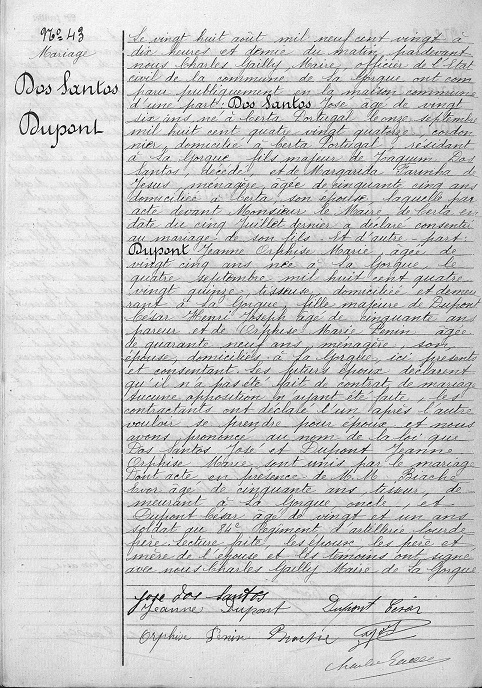 No 43
Mariage
Dos Santos
Dupont
Le vingt huit août mil neuf cent vingt à
dix heures et demie du matin, pardevant
nous Charles Gailly Maire, officier de l'Etat
civil de la commune de La Gorgue ont com
paru publiquement en la maison commune
d'une part: Dos Santos José, âgé de vingt
six ans, né à Certa Portugal le onze septembre
mil huit cent quatre vingt quatorze, cordon
nier, domicilié à Certa Portugal, résidant
à La Gorgue, fils majeur de Joaquim Dos
Santos, décédé, et de Margarida Farinha de
Jesus, ménagère, âgée de cinquante cinq ans
domiciliée à Certa, son épouse, laquelle par
acte devant Monsieur le Maire de Certa en
date du cinq Juillet dernier a déclaré consentir
au mariage de son fils Et d'autre part:
Dupont Jeanne Orphise Marie, âgée de
vingt cinq ans née à La Gorgue, le
quatre septembre mil huit cent quatre
vingt quinze, tisseuse, domiciliée et demeu
rant à La Gorgue, fille majeure de Dupont
César Henri Joseph âgé de cinquante ans
pareur et de Orphise Marie Penin âgée
de quarante neuf ans, ménagère, son
épouse, domiciliés à La Gorgue, ici présents
et consentant les futurs époux déclarent
qu'il n'a pas été fait de contrat de mariage
Aucune opposition n'ayant été faite, les
contractants ont déclaré l'un après l'autre
vouloir se prendre pour époux, et nous
avons prononcé au nom de la loi que
Dos Santos José et Dupont Jeanne
Orphise Marie sont unis par le mariage
Dont acte, en présence de M.M.
âgé de cinquante ans tisseur, de
meurant à La Gorgue, oncle, et
Dupont César âgé de vingt et un ans
soldat au 84e Régiment d'artillerie lourde
frère. Lecture faite les époux les père et
mère de l'épouse et les témoins ont signé
avec nous Charles Gailly Maire de La Gorgue
José dos Santos
Jeanne Dupont Dupont César
Orphise Penin